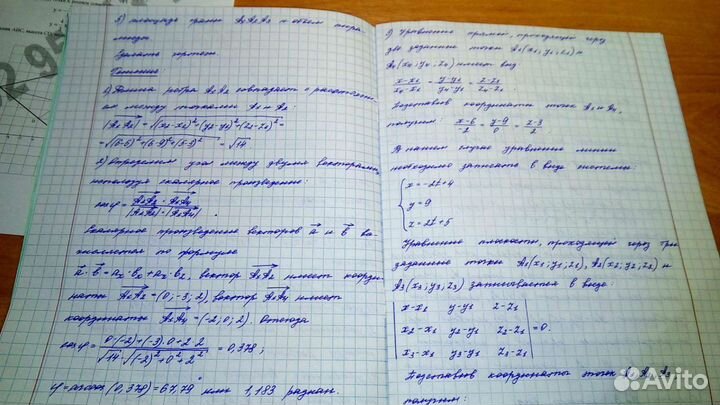 5) площадь грани A1A2A3 и объем пира-
миды
Сделать чертеж.
Решение
1) Длина ребра A1A2 совпадает с расстояни-
ем между точками A1 и A2:
|A1A2| = √(x1-x2)²+(y2-y1)²+(z2-z1)² =
= √14
2) Определим угол между двумя векторами,
используя скалярное произведение:
cos φ = A1A2 · A1A4 / |A1A2| · |A1A4| .
Скалярное произведение векторов a и b вы-
числяется по формуле
вектор A1A2 имеет коорди-
наты A1A2 = (0; -3; 2), вектор A1A4 имеет
координаты A1A4 = (-2; 0; 2). Отсюда
cos φ = 0·(-2)+(-3)·0+2·2 / √14 · √(-2)²+0²+2² = 0,378;
φ = arccos (0,378) = 67,79° или 1,183 радиан.
Уравнение прямой, проходящей через
две заданные точки A1(x1; y1; z1) и
A4(x4; y4; z4) имеет вид
x-x1 / x4-x1 = y-y1 / y4-y1 = z-z1 / z4-z1 .
Подставив координаты точек A1 и A4,
получим: x-6 / -2 = y-9 / 0 = z-3 / 2
В нашем случае уравнение линии
необходимо записать в виде системы:
x = -2t+4
y = 9
z = 2t+5
Уравнение плоскости, проходящей через три
заданные точки A1(x1; y1; z1), A2(x2; y2; z2) и
A3(x3; y3; z3) записывается в виде:
x-x1 y-y1 z-z1
x2-x1 y2-y1 z2-z1 = 0.
x3-x1 y3-y1 z3-z1
Подставив координаты точек A1, A2, A3
получим:
Avito